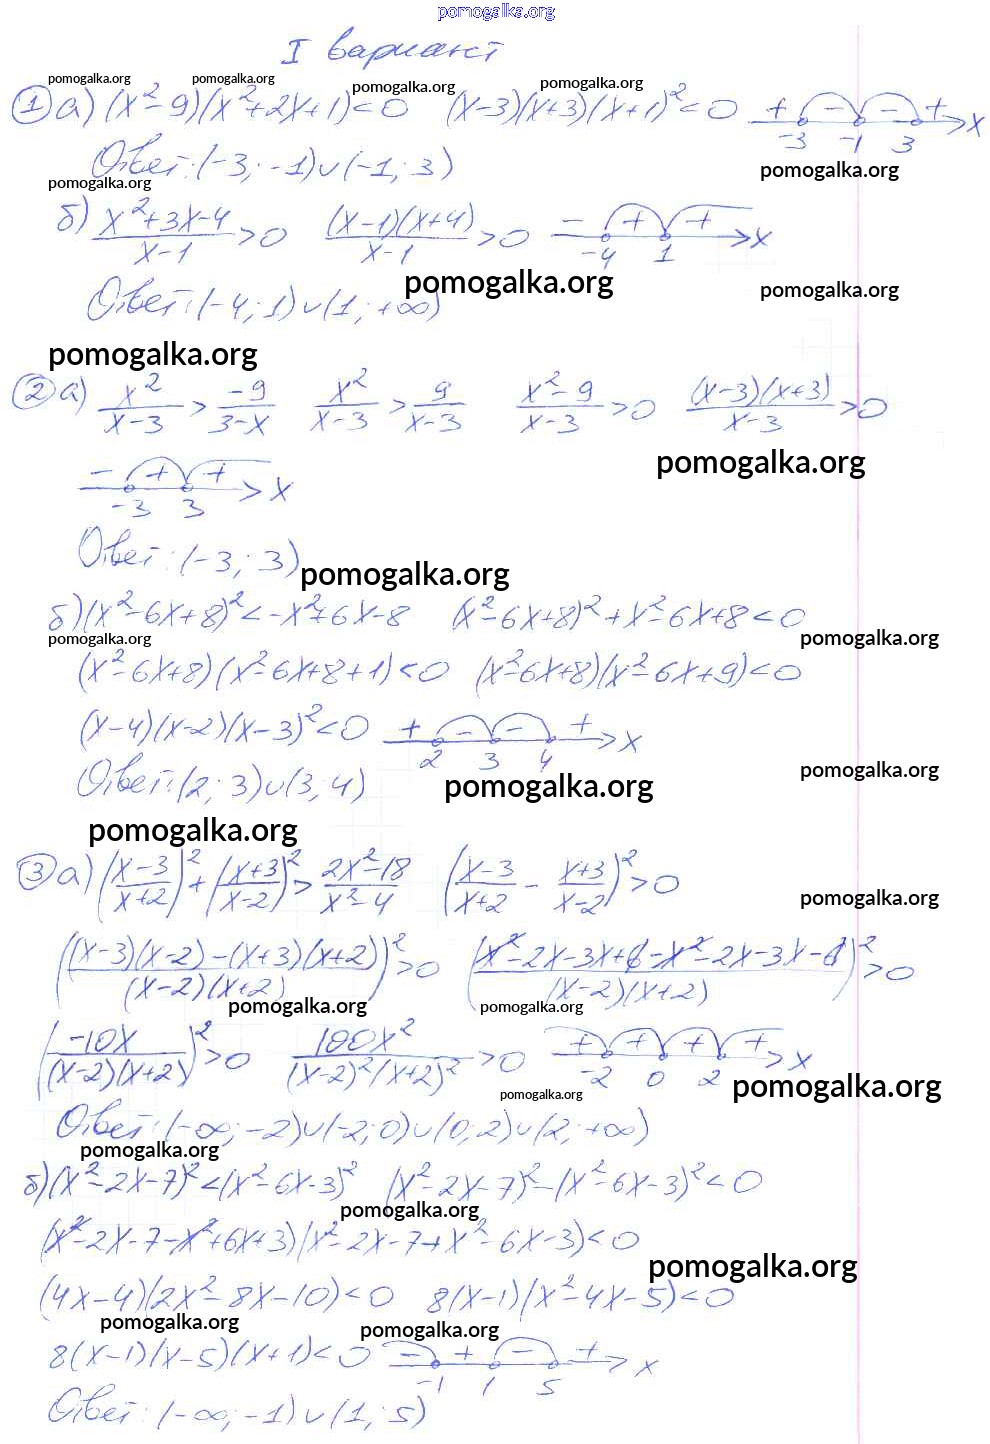 pomogalka.org
I вариант
pomogalka.org pomogalka.org pomogalka.org pomogalka.org
① а) (x²-9)(x²+2x+1)<0 (x-3)(x+3)(x+1)²<0 + - - + -3 -1 3 x
Ответ: (-3; -1)∪(-1; 3)
pomogalka.org
pomogalka.org
б) (x²+3x-4)/(x-1)>0 ((x-1)(x+4))/(x-1)>0 - + + -4 1 x
pomogalka.org pomogalka.org
Ответ: (-4; 1)∪(1; +∞)
pomogalka.org
② а) x²/(x-3) > -9/(3-x) x²/(x-3) > 9/(x-3) (x²-9)/(x-3)>0 ((x-3)(x+3))/(x-3)>0
pomogalka.org
- + + -3 3 x
Ответ: (-3; 3)
pomogalka.org
б) (x²-6x+8)²<-x²+6x-8 (x²-6x+8)²+x²-6x+8<0
pomogalka.org pomogalka.org
(x²-6x+8)(x²-6x+8+1)<0 (x²-6x+8)(x²-6x+9)<0
(x-4)(x-2)(x-3)²<0 + - - + 2 3 4 x
Ответ: (2; 3)∪(3; 4)
pomogalka.org pomogalka.org
pomogalka.org
③ а) ((x-3)/(x+2))²+((x+3)/(x-2))²>(2x²-18)/(x²-4) ((x-3)/(x+2) - (x+3)/(x-2))²>0
pomogalka.org
(((x-3)(x-2)-(x+3)(x+2))/((x-2)(x+2)))²>0 ((x²-2x-3x+6-x²-2x-3x-6)/((x-2)(x+2)))²>0
pomogalka.org pomogalka.org
(-10x/((x-2)(x+2)))²>0 100x²/((x-2)²(x+2)²)>0 + + + + -2 0 2 x
pomogalka.org pomogalka.org
Ответ: (-∞; -2)∪(-2; 0)∪(0; 2)∪(2; +∞)
pomogalka.org
б) (x²-2x-7)²<(x²-6x-3)² (x²-2x-7)²-(x²-6x-3)²<0
pomogalka.org
(x²-2x-7-x²+6x+3)(x²-2x-7+x²-6x-3)<0
pomogalka.org
(4x-4)(2x²-8x-10)<0 8(x-1)(x²-4x-5)<0
pomogalka.org pomogalka.org
8(x-1)(x-5)(x+1)<0 - + - + -1 1 5 x
Ответ: (-∞; -1)∪(1; 5)